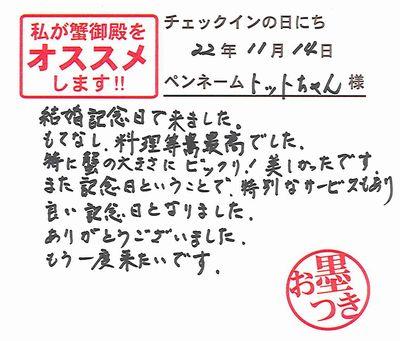 私が蟹御殿を
オススメ
します!!
チェックインの日にち
22年11月14日
ペンネーム トットちゃん 様
結婚記念日で来ました。
もてなし、料理等最高でした。
特に蟹の大きさにビックリ!美しかったです。
また記念日ということで、特別なサービスもあり
良い記念日となりました。
ありがとうございました。
もう一度来たいです。
お墨
つき